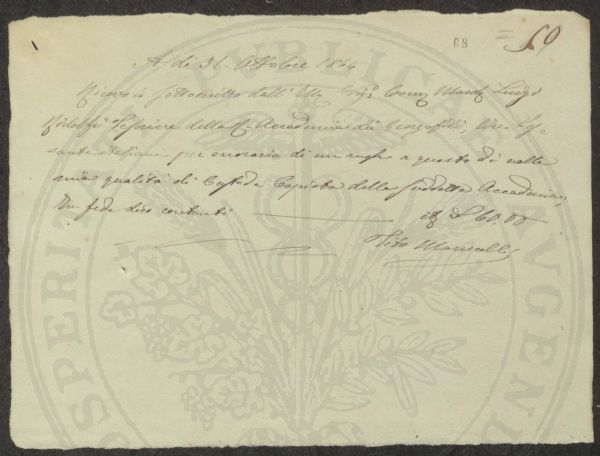 68 = 60
A dì 31. Ottobre 1864
Ricevo io sottoscritto dall' Ill. Sig. Comm. March. Luigi
Ridolfi Tesoriere della R. Accademia dei Georgofili, Lire Ses-
santa italiane per onorario di un mese a questo dì nella
mia qualità di Custode Copista della suddetta Accademia,
In fede dico contanti £ 60,00
Tito Marucelli
PROSPERITATI PUBLICAE AUGENDAE